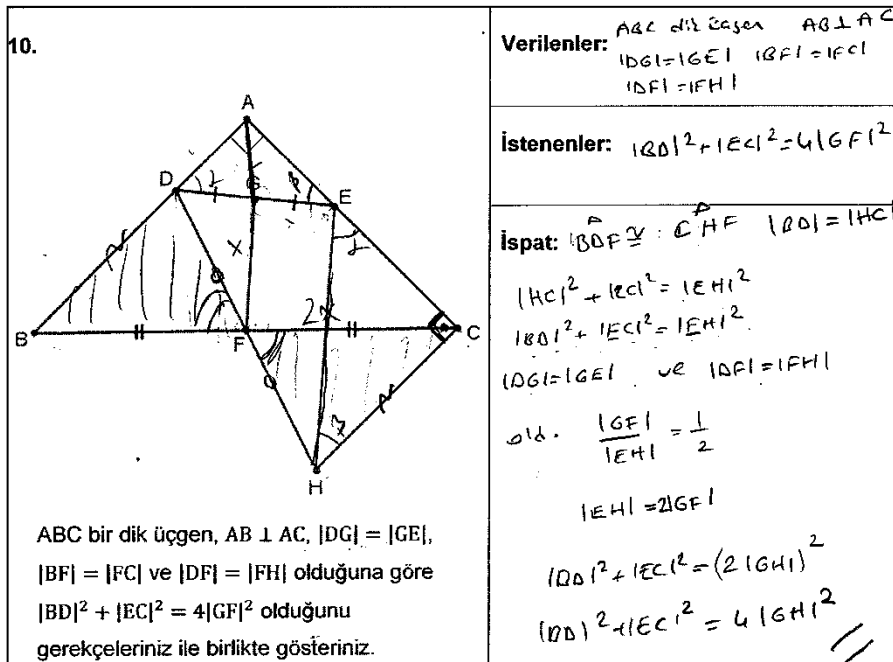 10.
A
D
G
E
x
B
F
2x
C
H
ABC bir dik üçgen, AB ⊥ AC, |DG| = |GE|,
|BF| = |FC| ve |DF| = |FH| olduğuna göre
|BD|² + |EC|² = 4|GF|² olduğunu
gerekçeleriniz ile birlikte gösteriniz.
Verilenler: ABC dik üçgen AB⊥AC
|DG|=|GE| |BF|=|FC|
|DF|=|FH|
İstenenler: |BD|²+|EC|²=4|GF|²
İspat: BDF ≅ CHF |BD|=|HC|
|HC|²+|EC|²=|EH|²
|BD|²+|EC|²=|EH|²
|DG|=|GE| ve |DF|=|FH|
old. |GF|/|EH| = 1/2
|EH|=2|GF|
|BD|²+|EC|²=(2|GH|)²
|BD|²+|EC|²=4|GH|²